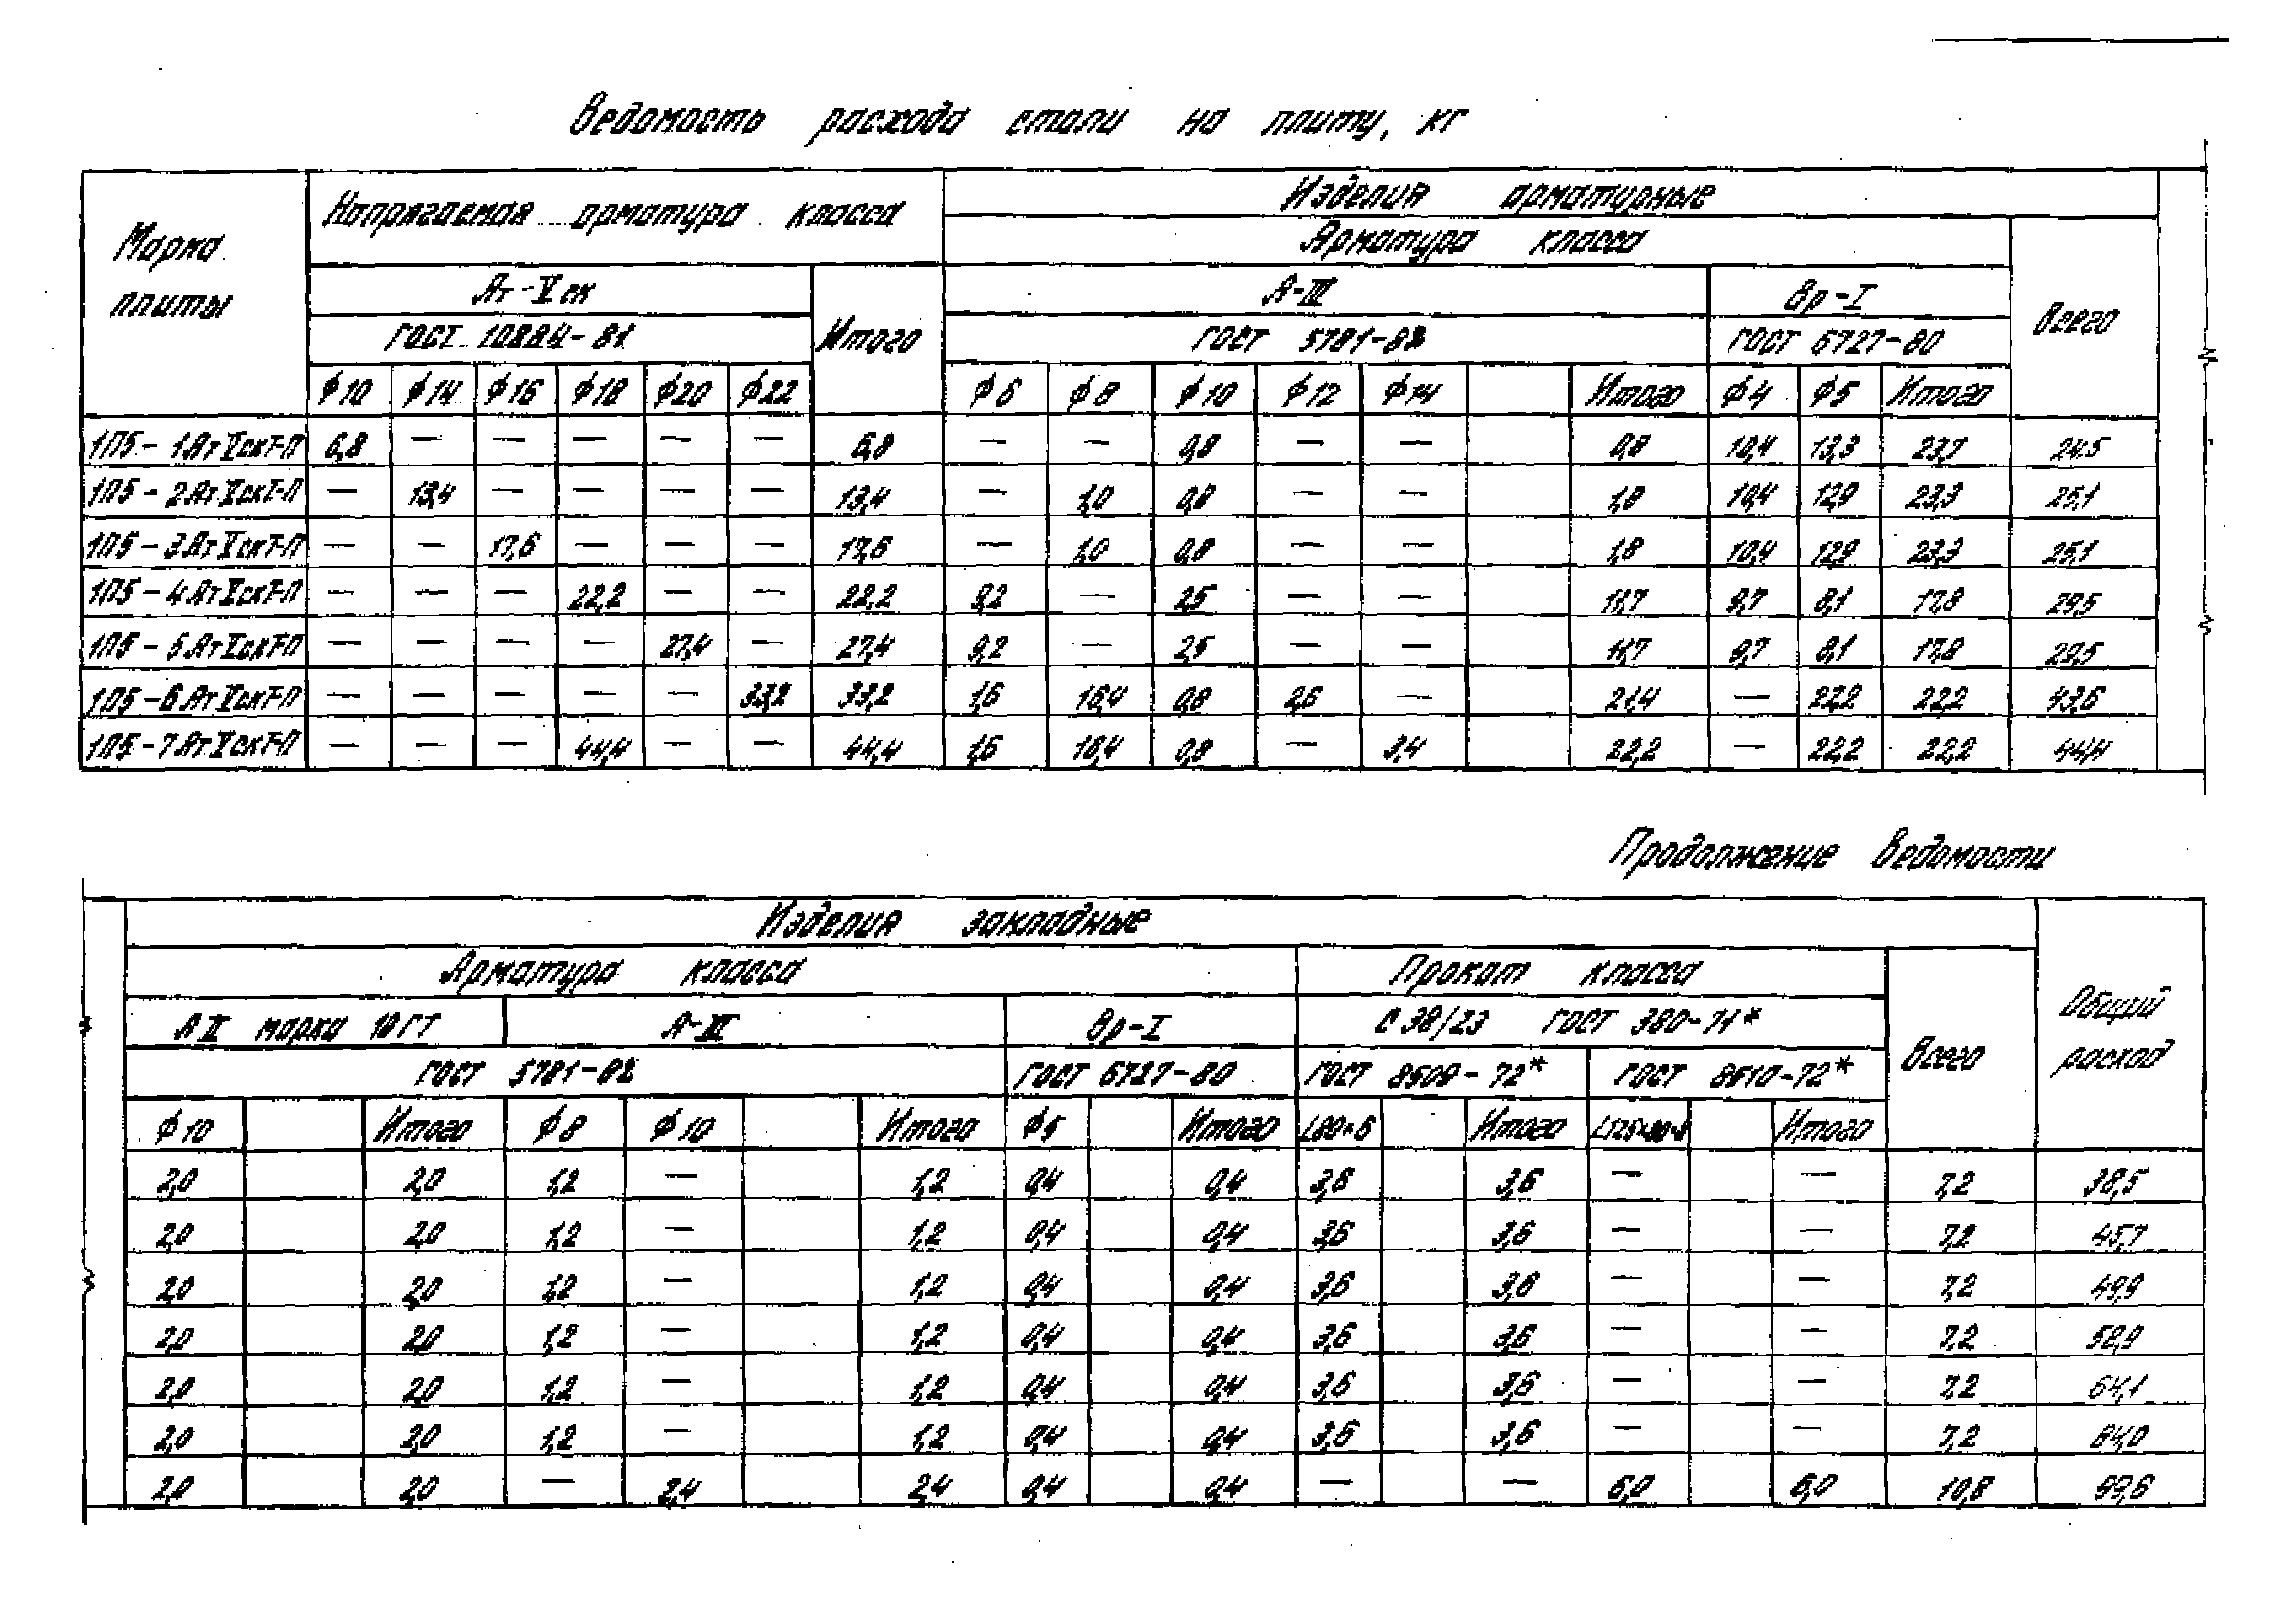 Ведомость расхода стали на плиту, кг
Марка плиты
Напрягаемая арматура класса
Изделия арматурные
Арматура класса
Ат-Vск
Итого
А-III
Вр-I
Всего
ГОСТ 10884-81
ГОСТ 5781-82
ГОСТ 6727-80
ϕ10 ϕ14 ϕ16 ϕ18 ϕ20 ϕ22 ϕ6 ϕ8 ϕ10 ϕ12 ϕ14 Итого ϕ4 ϕ5 Итого
1П5-1АтVскТ-П 6,8 — — — — — 6,8 — — 0,8 — — 0,8 10,4 13,3 23,7 24,5
1П5-2АтVскТ-П — 13,4 — — — — 13,4 — 1,0 0,8 — — 1,8 10,4 12,9 23,3 25,1
1П5-3АтVскТ-П — — 17,6 — — — 17,6 — 1,0 0,8 — — 1,8 10,4 12,9 23,3 25,1
1П5-4АтVскТ-П — — — 22,2 — — 22,2 9,2 — 2,5 — — 11,7 9,7 8,1 17,8 29,5
1П5-5АтVскТ-П — — — — 27,4 — 27,4 9,2 — 2,5 — — 11,7 9,7 8,1 17,8 29,5
1П5-6АтVскТ-П — — — — — 33,2 33,2 1,6 16,4 0,8 2,6 — 21,4 — 22,2 22,2 43,6
1П5-7АтVскТ-П — — — 44,4 — — 44,4 1,6 16,4 0,8 — 3,4 22,2 — 22,2 22,2 44,4
Продолжение ведомости
Изделия закладные
Общий расход
Арматура класса
Прокат класса
Всего
АII марка 10ГТ
А-III
Вр-I
С 38/23 ГОСТ 380-71*
ГОСТ 5781-82
ГОСТ 6727-80
ГОСТ 8509-72*
ГОСТ 8510-72*
ϕ10 Итого ϕ8 ϕ10 Итого ϕ5 Итого L80×6 Итого Итого
2,0 2,0 1,2 — 1,2 0,4 0,4 3,6 3,6 — — 7,2 38,5
2,0 2,0 1,2 — 1,2 0,4 0,4 3,6 3,6 — — 7,2 45,7
2,0 2,0 1,2 — 1,2 0,4 0,4 3,6 3,6 — — 7,2 49,9
2,0 2,0 1,2 — 1,2 0,4 0,4 3,6 3,6 — — 7,2 58,9
2,0 2,0 1,2 — 1,2 0,4 0,4 3,6 3,6 — — 7,2 64,1
2,0 2,0 1,2 — 1,2 0,4 0,4 3,6 3,6 — — 7,2 84,0
2,0 2,0 — 2,4 2,4 0,4 0,4 — — 6,0 6,0 10,8 99,6